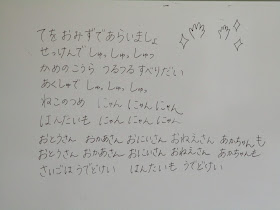 てをおみずであらいましょ
せっけんでしゅっしゅっしゅっ
かめのこうら つるつる すべりだい
あくしゅで しゅっ しゅっ しゅっ
ねこのつめ にゃん にゃん にゃん
はんたいも にゃん にゃん にゃん
おとうさん おかあさん おにいさん おねえさん あかちゃんも
おとうさん おかあさん おにいさん おねえさん あかちゃんも
さいごはうでどけい はんたいも うでどけい